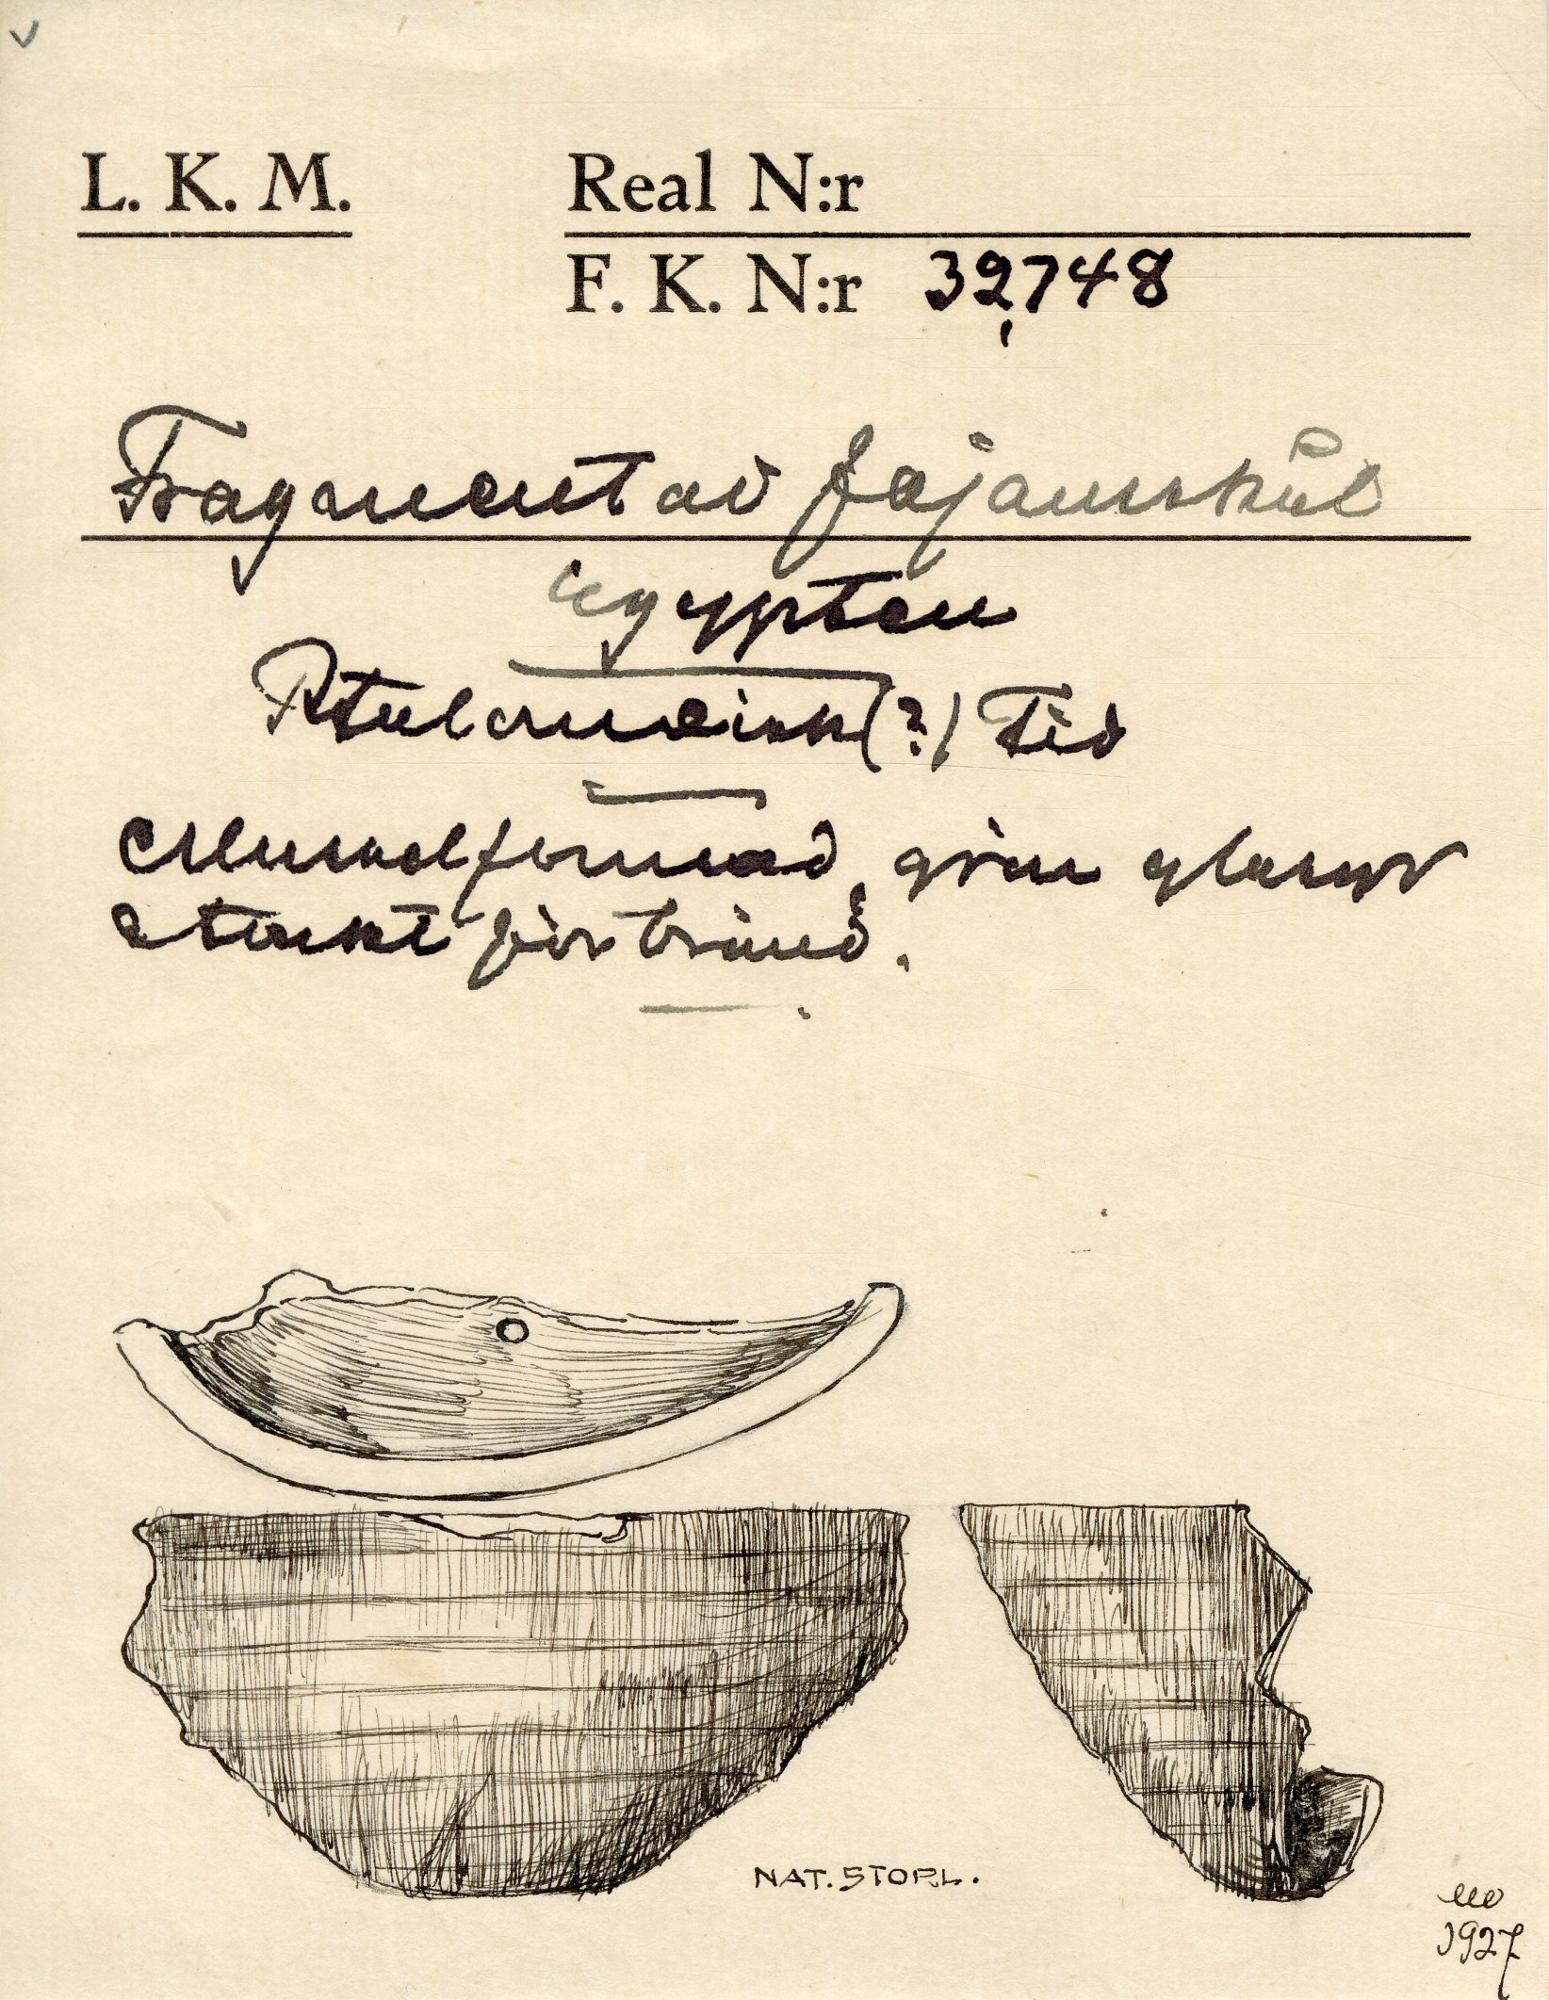 L. K. M.
Real N:r
F. K. N:r 32748
Fragment av fajansskål
Egypten
Ptolemeisk (?) Tid
Musselformad, grön glasyr
starkt förbränd.
NAT. STORL.
1927